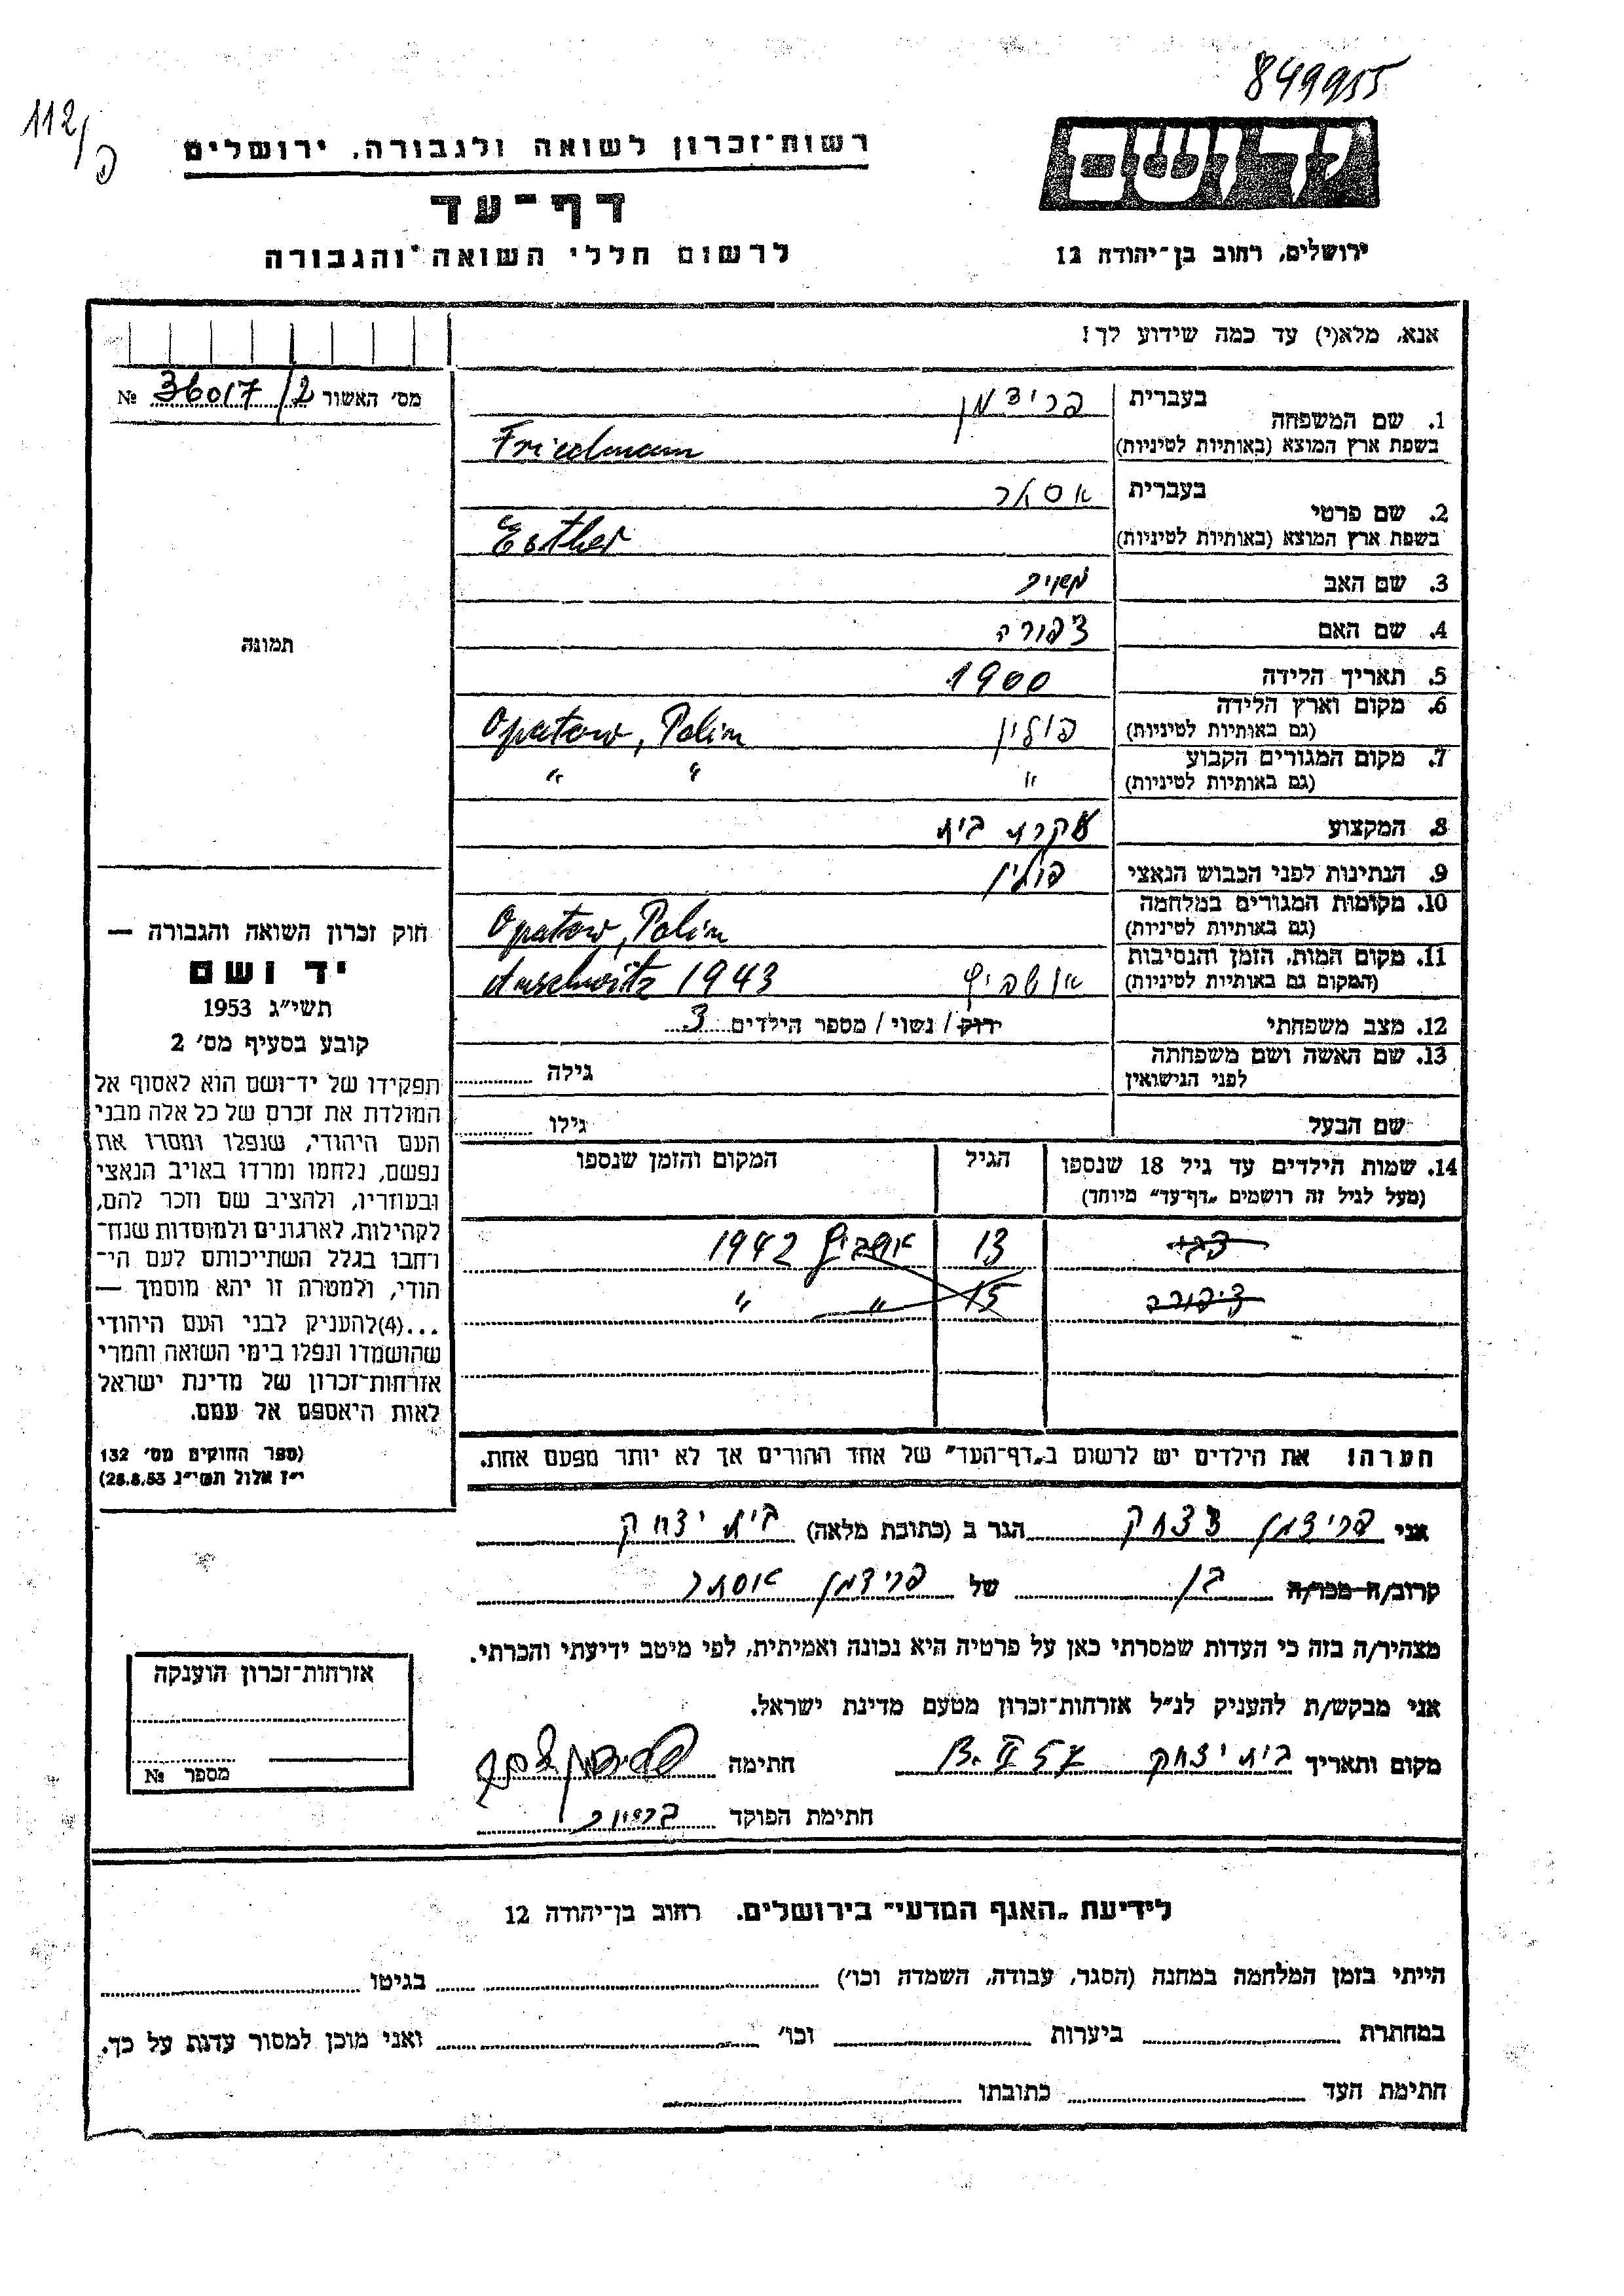 849955
112/פ
יד ושם
רשות־זכרון לשואה ולגבורה, ירושלים
דף־עד
לרשום חללי השואה והגבורה
ירושלים, רחוב בן־יהודה 12
אנא, מלא(י) עד כמה שידוע לך!
מס׳ האשור 36017/2 №
תמונה
1. שם המשפחה בעברית פרידמן
בשפת ארץ המוצא (באותיות לטיניות) Friedmann
2. שם פרטי בעברית
בשפת ארץ המוצא (באותיות לטיניות) Esther
3. שם האב
4. שם האם צפורה
5. תאריך הלידה 1900
6. מקום וארץ הלידה (גם באותיות לטיניות) פולין Opatow, Polin
7. מקום המגורים הקבוע (גם באותיות לטיניות) " " "
8. המקצוע עקרת בית
9. הנתינות לפני הכבוש הנאצי פולין
10. מקומות המגורים במלחמה (גם באותיות לטיניות) Opatow, Polin
11. מקום המות, הזמן והנסיבות (המקום גם באותיות לטיניות) אושביץ Auschwitz 1943
12. מצב משפחתי רוק / נשוי / מספר הילדים 3
13. שם האשה ושם משפחתה לפני הנישואין גילה
שם הבעל גילו
14. שמות הילדים עד גיל 18 שנספו הגיל המקום והזמן שנספו
(מעל לגיל זה רושמים „דף־עד״ מיוחד)
13 אושביץ 1942
ציפורה 15 " "
הערה! את הילדים יש לרשום ב„דף־העד״ של אחד ההורים אך לא יותר מפעם אחת.
חוק זכרון השואה והגבורה —
יד ושם
תשי״ג 1953
קובע בסעיף מס׳ 2
תפקידו של יד־ושם הוא לאסוף אל
המולדת את זכרם של כל אלה מבני
העם היהודי, שנפלו ומסרו את
נפשם, נלחמו ומרדו באויב הנאצי
ובעוזריו, ולהציב שם וזכר להם,
לקהילות, לארגונים ולמוסדות שנח־
רבו בגלל השתייכותם לעם הי־
הודי, ולמטרה זו יהא מוסמך —
...(4)להעניק לבני העם היהודי
שהושמדו ונפלו בימי השואה והמרי
אזרחות־זכרון של מדינת ישראל
לאות היאספם אל עמם.
(ספר החוקים מס׳ 132
י״ז אלול תשי״ג 28.8.53)
אני פרידמן יצחק הגר ב (כתובת מלאה) בית יצחק
קרוב/ה מכר/ה בן של פרידמן אסתר
מצהיר/ה בזה כי העדות שמסרתי כאן על פרטיה היא נכונה ואמיתית, לפי מיטב ידיעתי והכרתי.
אני מבקש/ת להעניק לנ״ל אזרחות־זכרון מטעם מדינת ישראל.
מקום ותאריך בית יצחק חתימה
חתימת הפוקד
אזרחות־זכרון הוענקה
מספר №
לידיעת „האגף המדעי״ בירושלים, רחוב בן־יהודה 12
הייתי בזמן המלחמה במחנה (הסגר, עבודה, השמדה וכו׳) בגיטו
במחתרת ביערות וכו׳ ואני מוכן למסור עדות על כך.
חתימת העד כתובתו